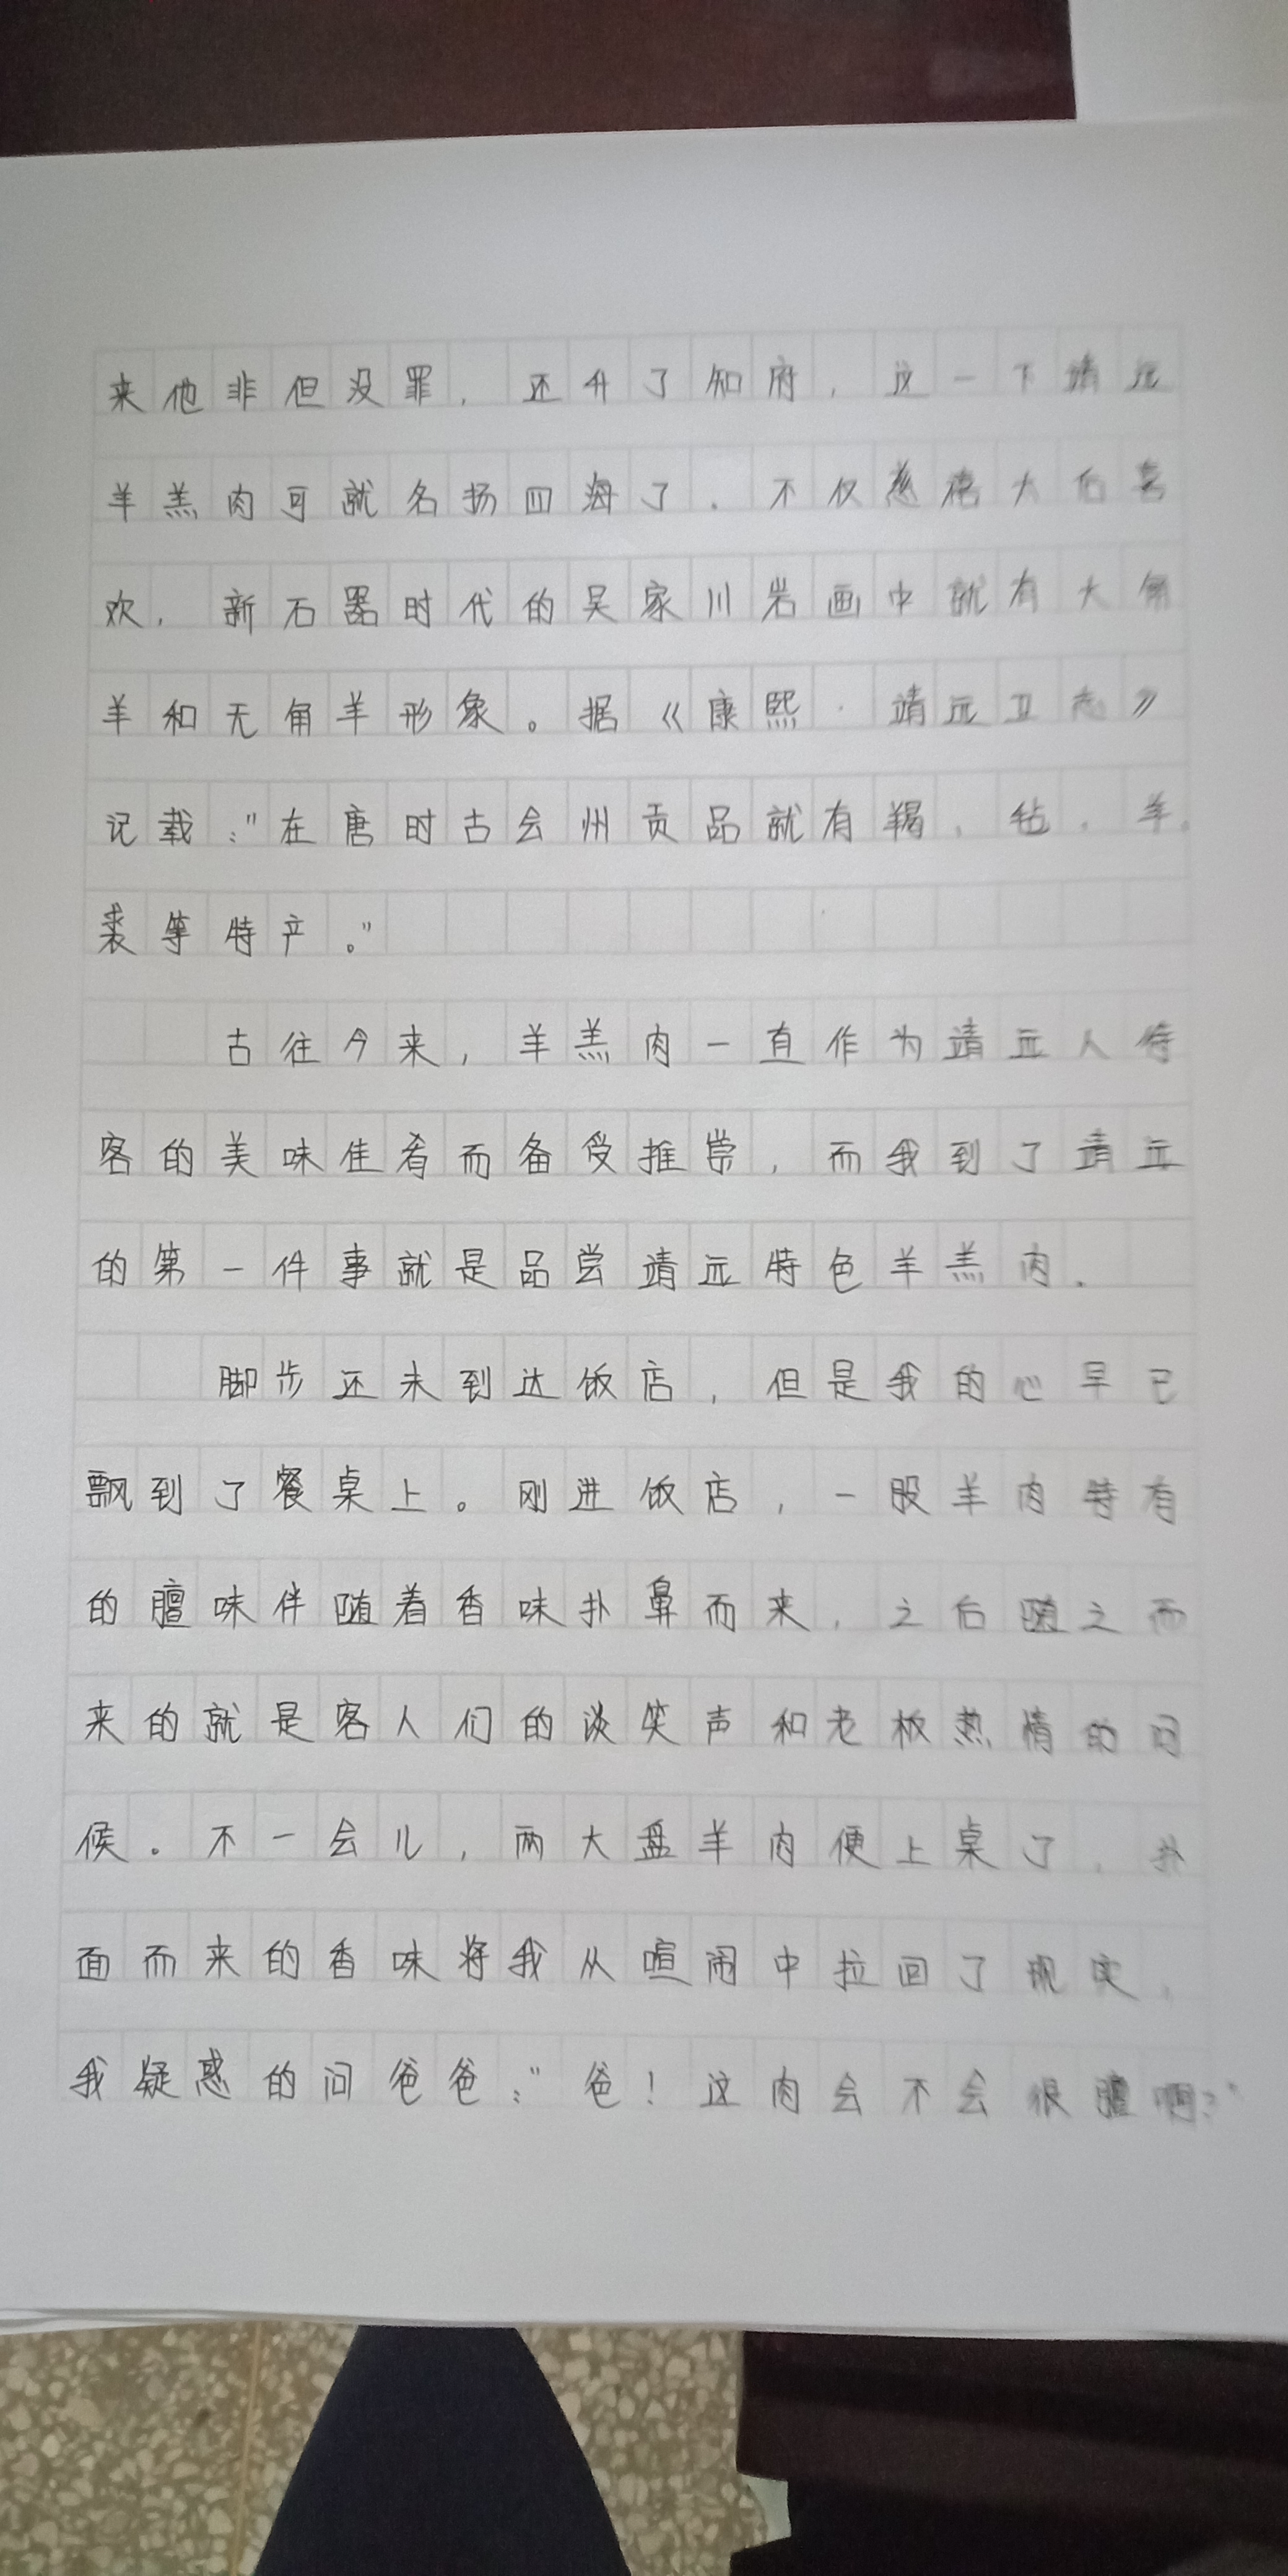 来他非但没罪，还升了知府，这一下靖远
羊羔肉可就名扬四海了。不仅慈禧大后喜
欢，新石器时代的吴家川岩画中就有大角
羊和无角羊形象。据《康熙·靖远卫志》
记载："在唐时古会州贡品就有羯，毡，羊
裘等特产。"
古往今来，羊羔肉一直作为靖远人待
客的美味佳肴而备受推崇，而我到了靖远
的第一件事就是品尝靖远特色羊羔肉。
脚步还未到达饭店，但是我的心早已
飘到了餐桌上。刚进饭店，一股羊肉特有
的膻味伴随着香味扑鼻而来，之后随之而
来的就是客人们的谈笑声和老板热情的问
候。不一会儿，两大盘羊肉便上桌了，扑
面而来的香味将我从喧闹中拉回了现实，
我疑惑的问爸爸："爸！这肉会不会很膻啊？"